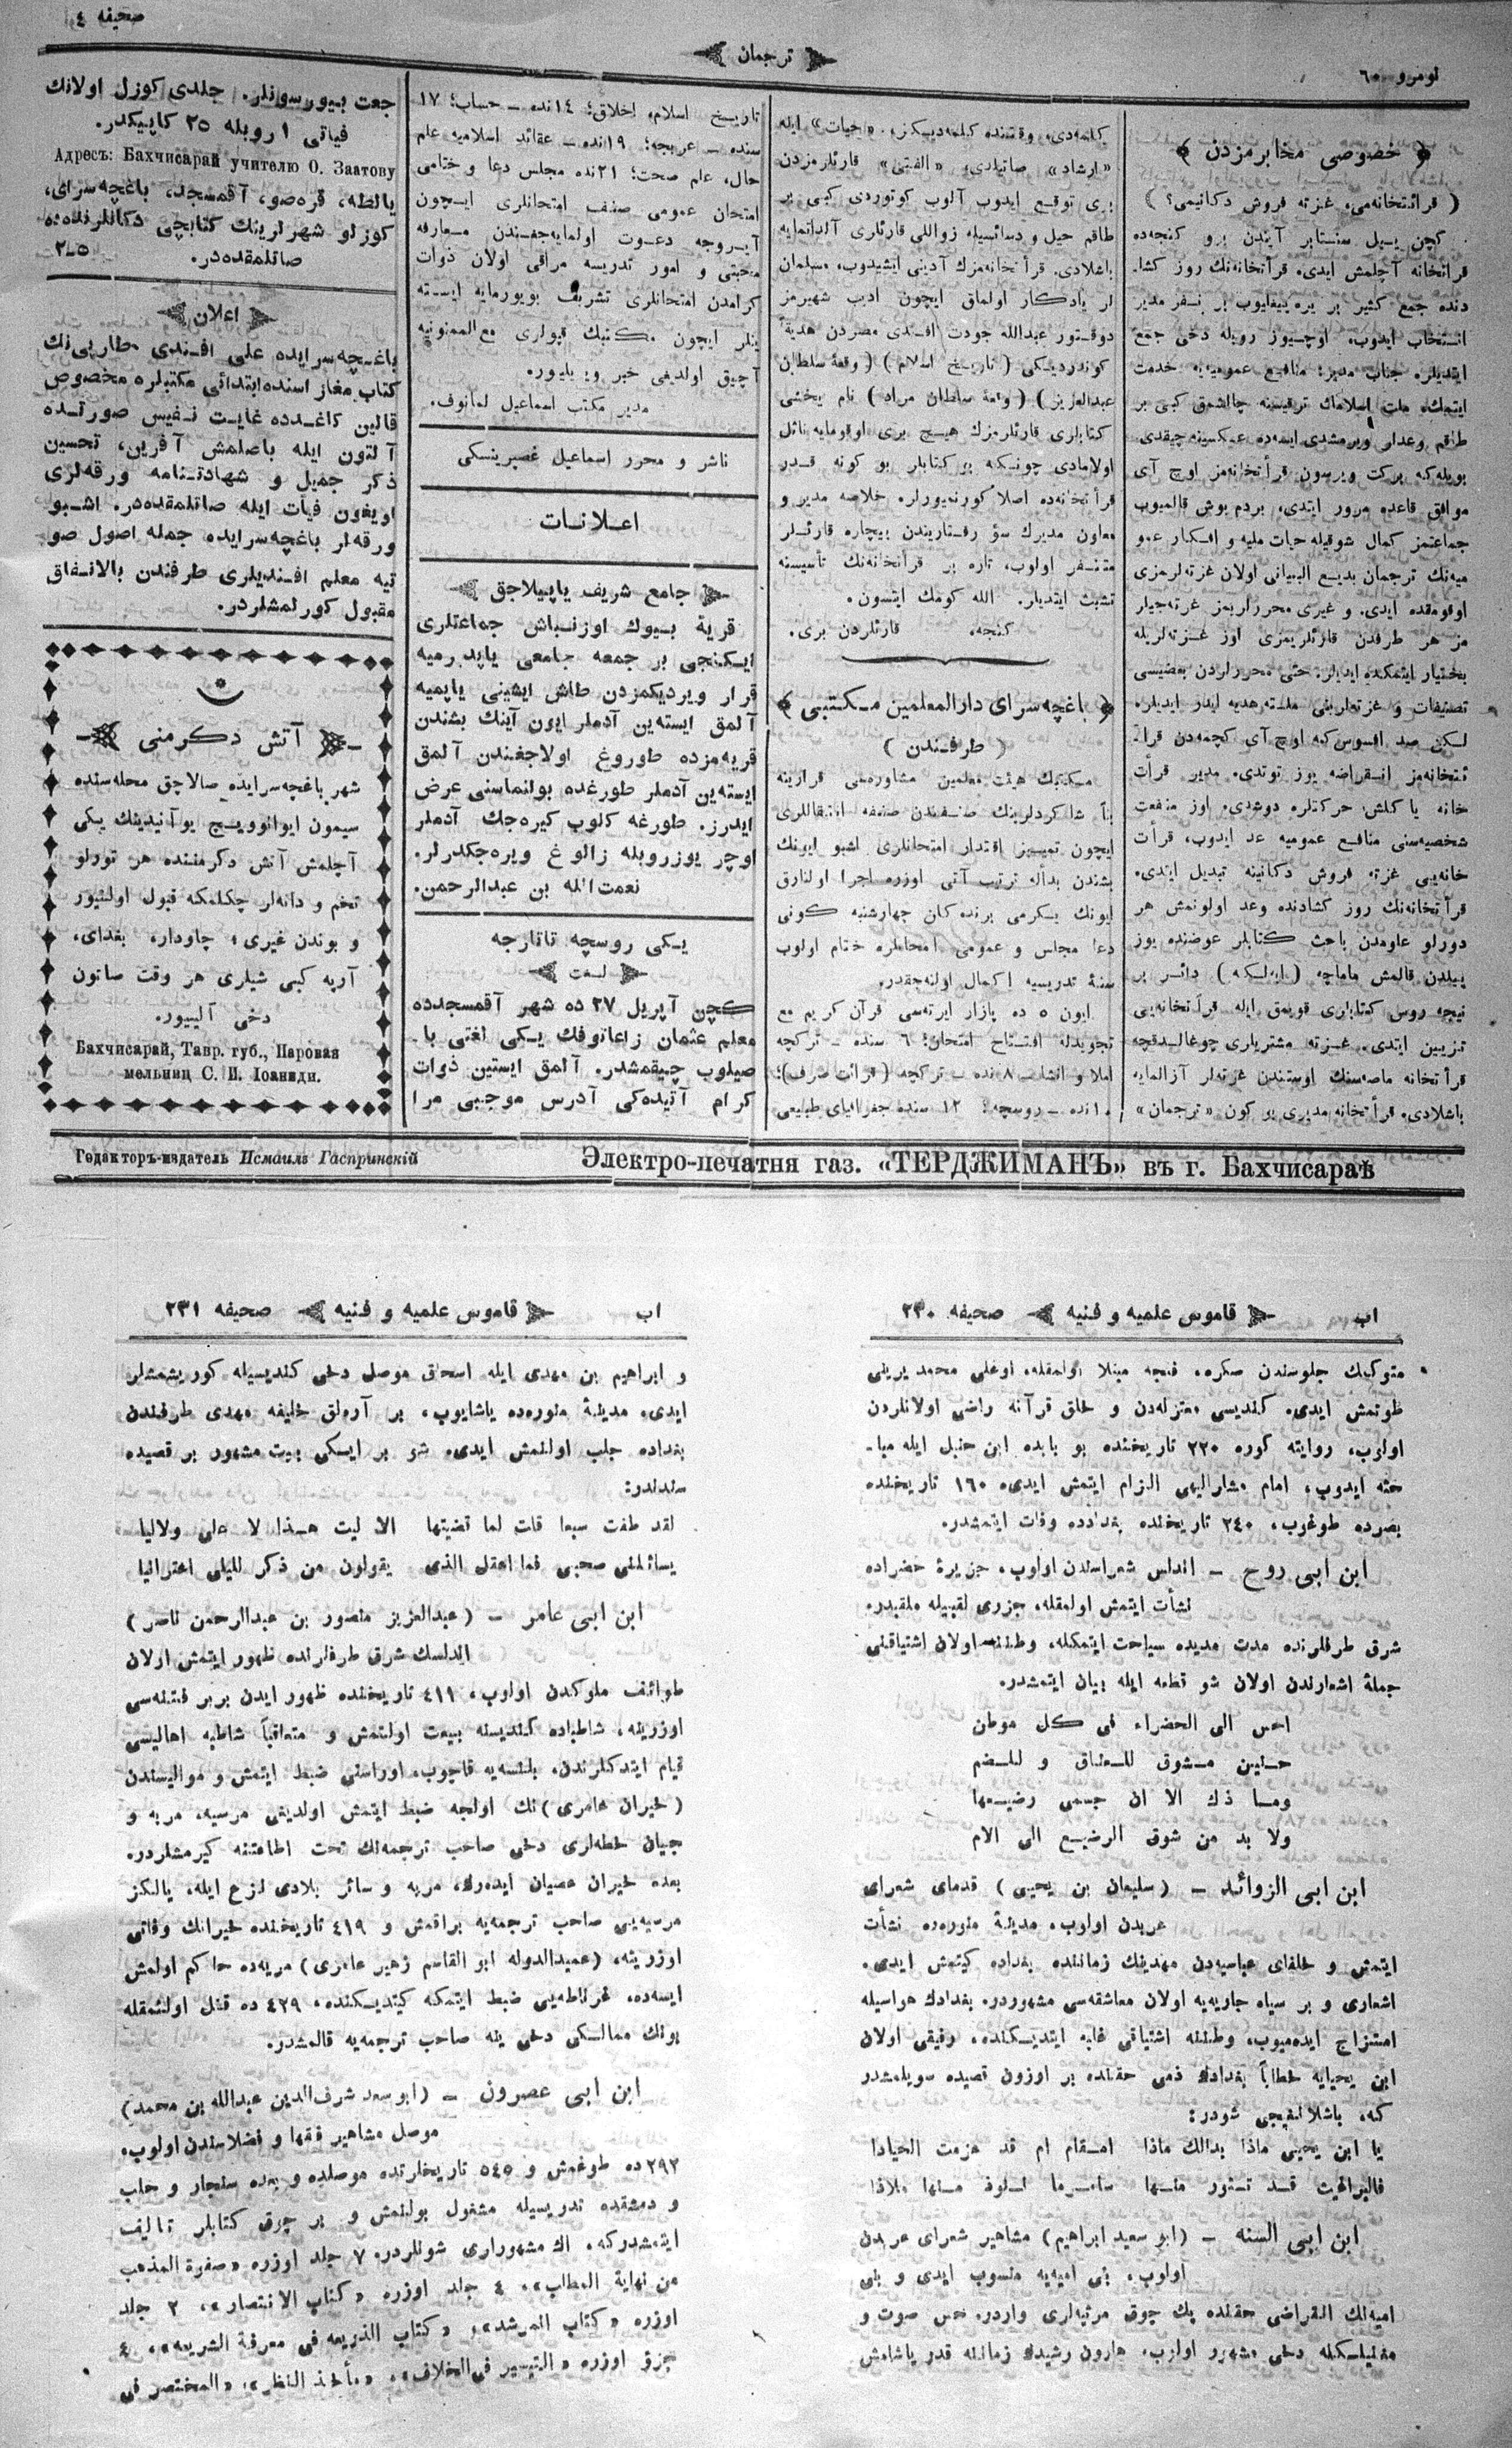 نومرو ٦٠
ترجمان
صحیفه ٤
خصوصی مخابرمزدن
( قرائتخانه‌می، غزته فروش دکانیمی؟ )
کچن ییل سنتابر آیندن برو کنجه‌ده
قرائتخانه آچلمش ایدی. قرأتخانه‌نك روز کشا-
دنده جمع کثیر بر یره ییغلیوب بر نفر مدیر
انتخاب ایدوب، اوچیوز روبله دخی جمع
ایتدیلر. جناب مدیر؛ منافع عمومیه‌یه خدمت
ایتمك، ملت اسلامك ترقیسنه چالشمق کبی بر
طاقم وعدلر ویرمشدی ایسه‌ده عکسینه چیقدی.
بویله‌که برکت ویرسون قرأتخانه‌مز اوچ آی
موافق قاعده مرور ایتدی، بردم بوش قالمیوب
جماعتمز کمال شوقیله حیات ملیه و افکار عمو
میه‌نك ترجمان بدیع البیانی اولان غزته‌لرمزی
اوقومقده ایدی. و غیری محررلریمز غزته‌جیلر
مز هر طرفدن قارئلریمزی اوز غزته‌لریله
بختیار ایتمکده ایدیلر. حتی محررلردن بعضیسی
تصنیفات و غزته‌لرینی ملته هدیه ایدر ایدیلر.
لکن صد افسوس‌که اوچ آی کچمه‌دن قرأ-
ئتخانه‌مز انقراضه یوز توتدی. مدیر قرأت
خانه یاکلش حرکتلره دوشدی. اوز منفعت
شخصیه‌سنی منافع عمومیه عد ایدوب، قرأت
خانه‌یی غزته فروش دکانینه تبدیل ایتدی.
قرأتخانه‌نك روز کشادنده وعد اولونمش هر
دورلو علومدن باحث کتابلر عوضنده یوز
ییلدن قالمش ماماچه دائر بر
نیچه روس کتابلری قویمق ایله قرأتخانه‌یی
تزیین ایتدی. غزته مشتریلری چوغالدقچه
قرأتخانه ماصه‌سنك اوستندن غزته‌لر آزالمایه
باشلادی. قرأتخانه مدیری بو کون «ترجمان»
کلمه‌دی، وقتنده کلمه‌دیکز، «حیات» ایله
«ارشاد» صاتیلدی، «الفتی» قارئلرمزدن
بری توقیع ایدوب آلوب کوتوردی کبی بر
طاقم حیل و دسائسیله زواللی قارئلری آلداتمایه
باشلادی. قرأتخانه‌مزك آدینی ایشیدوب، مسلمان
لر یادکار اولماق ایچون ادیب شهیرمز
دوقتور عبدالله جودت افندی مصردن هدیةً
کوندردیکی ( تاریخ اسلام ) ( وقعهٔ سلطان
عبدالعزیز ) ( وقعهٔ سلطان مراد ) نام یخشی
کتابلری قارئلرمزك هیچ بری اوقومایه نائل
اولامادی چونکه بو کتابلر بو کونه قدر
قرأتخانه‌ده اصلا کورنمیورلر. خلاصه مدیر و
معاون مدیرك سؤ رفتاریندن بیچاره قارئلر
متنفر اولوب، تازه بر قرأتخانه‌نك تأسیسنه
تشبث ایتدیلر. الله کومك ایتسون.
کنجه، قارئلردن بری.
باغچه‌سرای دارالمعلمین مکتبی
( طرفندن )
مکتبك هیئت معلمین مشاوره‌سی قرارینه
بنأ شاکردلرینك صنفدن صنفه انتقاللری
ایچون تمییز اقتدار امتحانلری اشبو ایونك
بشندن بدأله ترتیب آتی اوزره اجرا اولنارق
ایونك یکرمی برنده‌کان چهارشنبه کونی
دعا مجلس و عمومی امتحانلره ختام اولوب
سنهٔ تدریسیه اکمال اولنه‌جقدر.
ایون ٥ ده پازار ایرته‌سی قرآن کریم مع
تجویدله افتتاح امتحان؛ ٦ سنده - ترکچه
املا و انشا، ٨ نده - ترکچه ( قرائت صرف )؛
١٠ نده - روسچه؛ ١٢ سنده جغرافیای طبیعی
تاریخ اسلام، اخلاق؛ ١٤ نده - حساب؛ ١٧
سنده - عربجه؛ ١٩ نده - عقائد اسلامیه علم
حال، علم صحت؛ ٢١ نده مجلس دعا و ختامی
امتحان عمومی صنف امتحانلری ایچون
آیروجه دعوت اولمایه‌جغندن معارفه
محبتی و امور تدریسه مراقی اولان ذوات
کرامدن امتحانلری تشریف بویورمایه ایسته
ینلر ایچون مکتبك قبولری مع الممنونیه
آچیق اولدیغی خبر ویریلیور.
مدیر مکتب اسماعیل لمانوف.
ناشر و محرر اسماعیل غصپرینسکی
اعلانات
جامع شریف یاپیلاجق
قریهٔ بیوك اوزنباش جماعتلری
ایکنجی بر جمعه جامعی یاپدرمیه
قرار ویردیکمزدن طاش ایشینی یاپمیه
آلمق ایسته‌ین آدملر ایون آینك بشندن
قریه‌مزده طوروغ اولاجغندن آلمق
ایسته‌ین آدملر طورغده بولنماسنی عرض
ایدرز. طورغه کلوب کیره‌جك آدملر
اوچر یوزروبله زالوغ ویره‌جکدرلر.
نعمت الله بن عبدالرحمن.
یکی روسچه تاتارجه
لغت
کچن آپریل ٢٧ ده شهر آقمسجدده
معلم عثمان زاعاتوفك یکی لغتی با-
صیلوب چیقمشدر. آلمق ایستین ذوات
کرام آتیده‌کی آدرس موجبی مرا
جعت بیورسونلر. جلدی کوزل اولانك
فیاتی ١ روبله ٢٥ کاپیکدر.
Адресъ: Бахчисарай учителю О. Заатову
یالطه، قره‌صو، آقمسجد، باغچه‌سرای،
کوزلو شهرلرینك کتابچی دکانلرنده‌ده
صاتلمقده‌در. ٥-٢
اعلان
باغچه‌سرایده علی افندی طارپی‌نك
کتاب مغازاسنده ابتدائی مکتبلره مخصوص
قالین کاغدده غایت نفیس صورتده
آلتون ایله باصلمش آفرین، تحسین
ذکر جمیل و شهادتنامه ورقه‌لری
اویغون فیأت ایله صاتلمقده‌در. اشبو
ورقه‌لر باغچه‌سرایده جمله اصول صو
تیه معلم افندیلری طرفندن بالاتفاق
مقبول کورلمشلردر.
آتش دکرمنی
شهر باغچه‌سرایده صالاجق محله‌سنده
سیمون ایوانوویچ یوآنیدینك یکی
آچلمش آتش دکرمننده هر تورلو
تخم و دانه‌لر چکلمکه قبول اولنیور
و بوندن غیری؛ چاودار، بغدای،
آرپه کبی شیلری هر وقت صاتون
دخی آلیبیور.
Бахчисарай, Тавр. губ., Паровая
мельниц С. И. Іоаниди.
Редакторъ-издатель Исмаилъ Гаспринскій
Электро-печатня газ. «ТЕРДЖИМАНЪ» въ г. Бахчисараѣ
اب قاموس علمیه و فنیه صحیفه ٢٣٠
متوکلك جلوسندن صکره، فلجه مبتلا اولمقله، اوغلی محمد یرینی
طوتمش ایدی. کندیسی معتزله‌دن و خلق قرآنه راضی اولانلردن
اولوب، روایته کوره ٢٢٠ تاریخنده بو بابده ابن حنبل ایله مبا-
حثه ایدوب، امام مشارالیهی الزام ایتمش ایدی. ١٦٠ تاریخنده
بصرده طوغوب، ٢٤٠ تاریخنده بغدادده وفات ایتمشدر.
ابن ابی روح - اندلس شعراسندن اولوب، جزیرهٔ خضراده
نشأت ایتمش اولمقله، جزری لقبیله ملقبدر.
شرق طرفلرنده مدت مدیده سیاحت ایتمکله، وطننه اولان اشتیاقنی
جملهٔ اشعارندن اولان شو قطعه ایله بیان ایتمشدر.
احن الی الخضراء فی کل موطن
حنین مشوق للعناق و للضم
وما ذك الا ان جسمی رضیعها
ولا بد من شوق الرضیع الی الام
ابن ابی الزوائد - ( سلیمان بن یحیی ) قدمای شعرای
عربدن اولوب، مدینهٔ منوره‌ده نشأت
ایتمش و خلفای عباسیه‌دن مهدینك زماننده بغداده کیتمش ایدی.
اشعاری و بر سیاه جاریه‌یه اولان معاشقه‌سی مشهوردر. بغدادك هواسیله
امتزاج ایده‌میوب، وطننه اشتیاقی غلبه ایتدیکنده، رفیقی اولان
ابن یحیایه خطاباً بغدادك ذمی حقنده بر اوزون قصیده سویلمشدر
که، باشلانغیجی شودر:
یا ابن یحیی ماذا بدالك ماذا امقام ام قد عزمت الحیاذا
فالبراغیث قد تثور منها سامر ما نلوذ منها ملاذا
ابن ابی السنه - (ابو سعید ابراهیم) مشاهیر شعرای عربدن
اولوب، بنی امیه‌یه منسوب ایدی و بنی
امیه‌نك انقراضی حقنده پك چوق مرثیه‌لری واردر. حسن صوت و
مغنیلیکله دخی مشهور اولوب، هارون رشیدك زماننه قدر یاشامش
اب قاموس علمیه و فنیه صحیفه ٢٣١
و ابراهیم بن مهدی ایله اسحاق موصلی دخی کندیسیله کوریشمشلر
ایدی. مدینهٔ منوره‌ده یاشایوب، بر آره‌لق خلیفه مهدی طرفندن
بغداده جلب اولنمش ایدی. شو بر ایکی بیت مشهور بر قصیده
سندندر:
لقد طفت سبعا قلت لما قضیتها الا لیت هذا لا علی ولا لیا
یسائلنی صحبی فما اعقل الذی یقولون من ذکر للیلی اعترانیا
ابن ابی عامر - (عبدالعزیز منصور بن عبدالرحمن ناصر)
اندلسك شرق طرفلرنده ظهور ایتمش اولان
طوائف ملوکدن اولوب، ٤١١ تاریخنده ظهور ایدن بربر فتنه‌سی
اوزرینه، شاطبه‌ده کندیسنه بیعت اولنمش و متعاقباً شاطبه اهالیسی
قیام ایتدکلرندن، بلنسیه‌یه قاچوب، اوراسنی ضبط ایتمش و موالیسندن
(خیران عامری) نك اولجه ضبط ایتمش اولدیغی مرسیه، مریه و
جیان خطه‌لری دخی صاحب ترجمه‌نك تحت اطاعتنه کیرمشلردر.
بعده خیران عصیان ایده‌رك، مریه و سائر بلادی نزع ایله، یالکز
مرسیه‌یی صاحب ترجمه‌یه براقمش و ٤١٩ تاریخنده خیرانك وفاتی
اوزرینه، (عمیدالدوله ابو القاسم زهیر عامری) مریه‌ده حاکم اولمش
ایسه‌ده، غرناطه‌یی ضبط ایتمکه کیتدیکنده، ٤٢٩ ده قتل اولنمقله
بونك ممالکی دخی ینه صاحب ترجمه‌یه قالمشدر.
ابن ابی عصرون - (ابو سعد شرف الدین عبدالله بن محمد)
موصل مشاهیر فقها و فضلاسندن اولوب،
٢٩٢ ده طوغمش و ٥٤٥ تاریخلرنده موصلده و بعده سنجار و حلب
و دمشقده تدریسیله مشغول بولنمش و بر چوق کتابلر تألیف
ایتمشدرکه، اك مشهورلری شونلردر. ٧ جلد اوزره «صفوة المذهب
من نهایة المطلب»، ٤ جلد اوزره «کتاب الانتصار»، ٢ جلد
اوزره «کتاب المرشد»، «کتاب الذریعه فی معرفة الشریعه»، ٤
جزؤ اوزره «التیسیر فی الخلاف»، «مأخذ النظر»، «المختصر فی